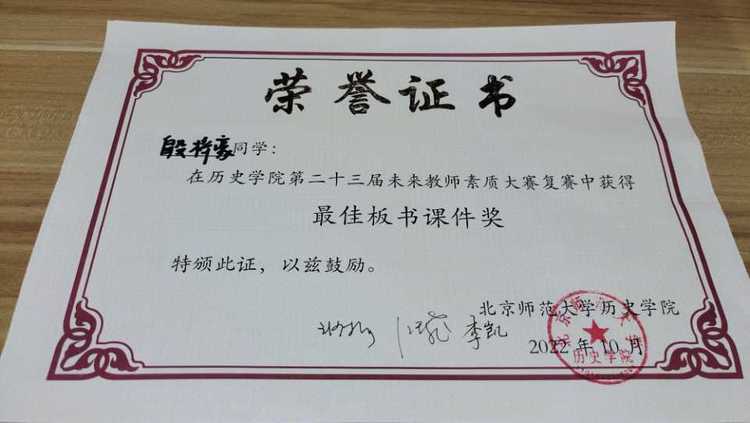 荣誉证书
殷将豪同学：
在历史学院第二十三届未来教师素质大赛复赛中获得
最佳板书课件奖
特颁此证，以兹鼓励。
北京师范大学历史学院
李凯
2022年10月
历史学院